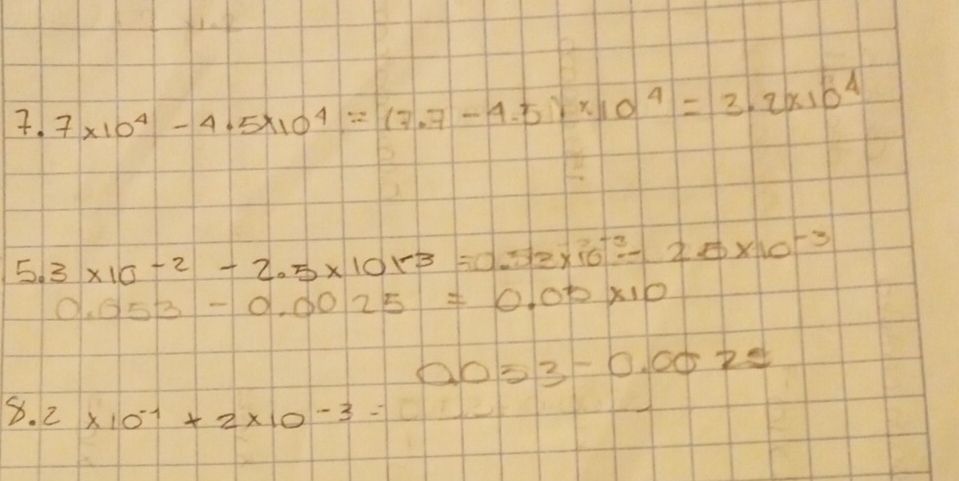 7.7×10⁴ - 4.5×10⁴ = (7.7 - 4.5) ×10⁴ = 3.2×10⁴
5.3 ×10⁻² - 2.5×10⁻³ 2.5×10⁻³
0.053 - 0.0025 = ×10
0.053 - 0.002
8.2 ×10⁻¹ + 2×10⁻³ =